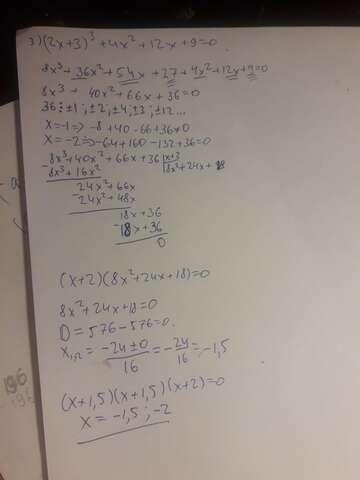 3) (2x+3)³ + 4x² + 12x + 9 = 0.
8x³ + 36x² + 54x + 27 + 4x² + 12x + 9 = 0
8x³ + 40x² + 66x + 36 = 0
36: ±1; ±2; ±4; ±3; ±12...
x = -1 => -8 + 40 - 66 + 36 ≠ 0
x = -2 => -64 + 160 - 132 + 36 = 0
8x³ + 40x² + 66x + 36 |x+2
- 8x³ + 16x² |8x² + 24x + 18
24x² + 66x
- 24x² + 48x
18x + 36
- 18x + 36
0
(x+2)(8x² + 24x + 18) = 0
8x² + 24x + 18 = 0
D = 576 - 576 = 0.
x₁,₂ = -24 ± 0 / 16 = -24/16 = -1,5
(x+1,5)(x+1,5)(x+2) = 0
x = -1,5; -2
196
196